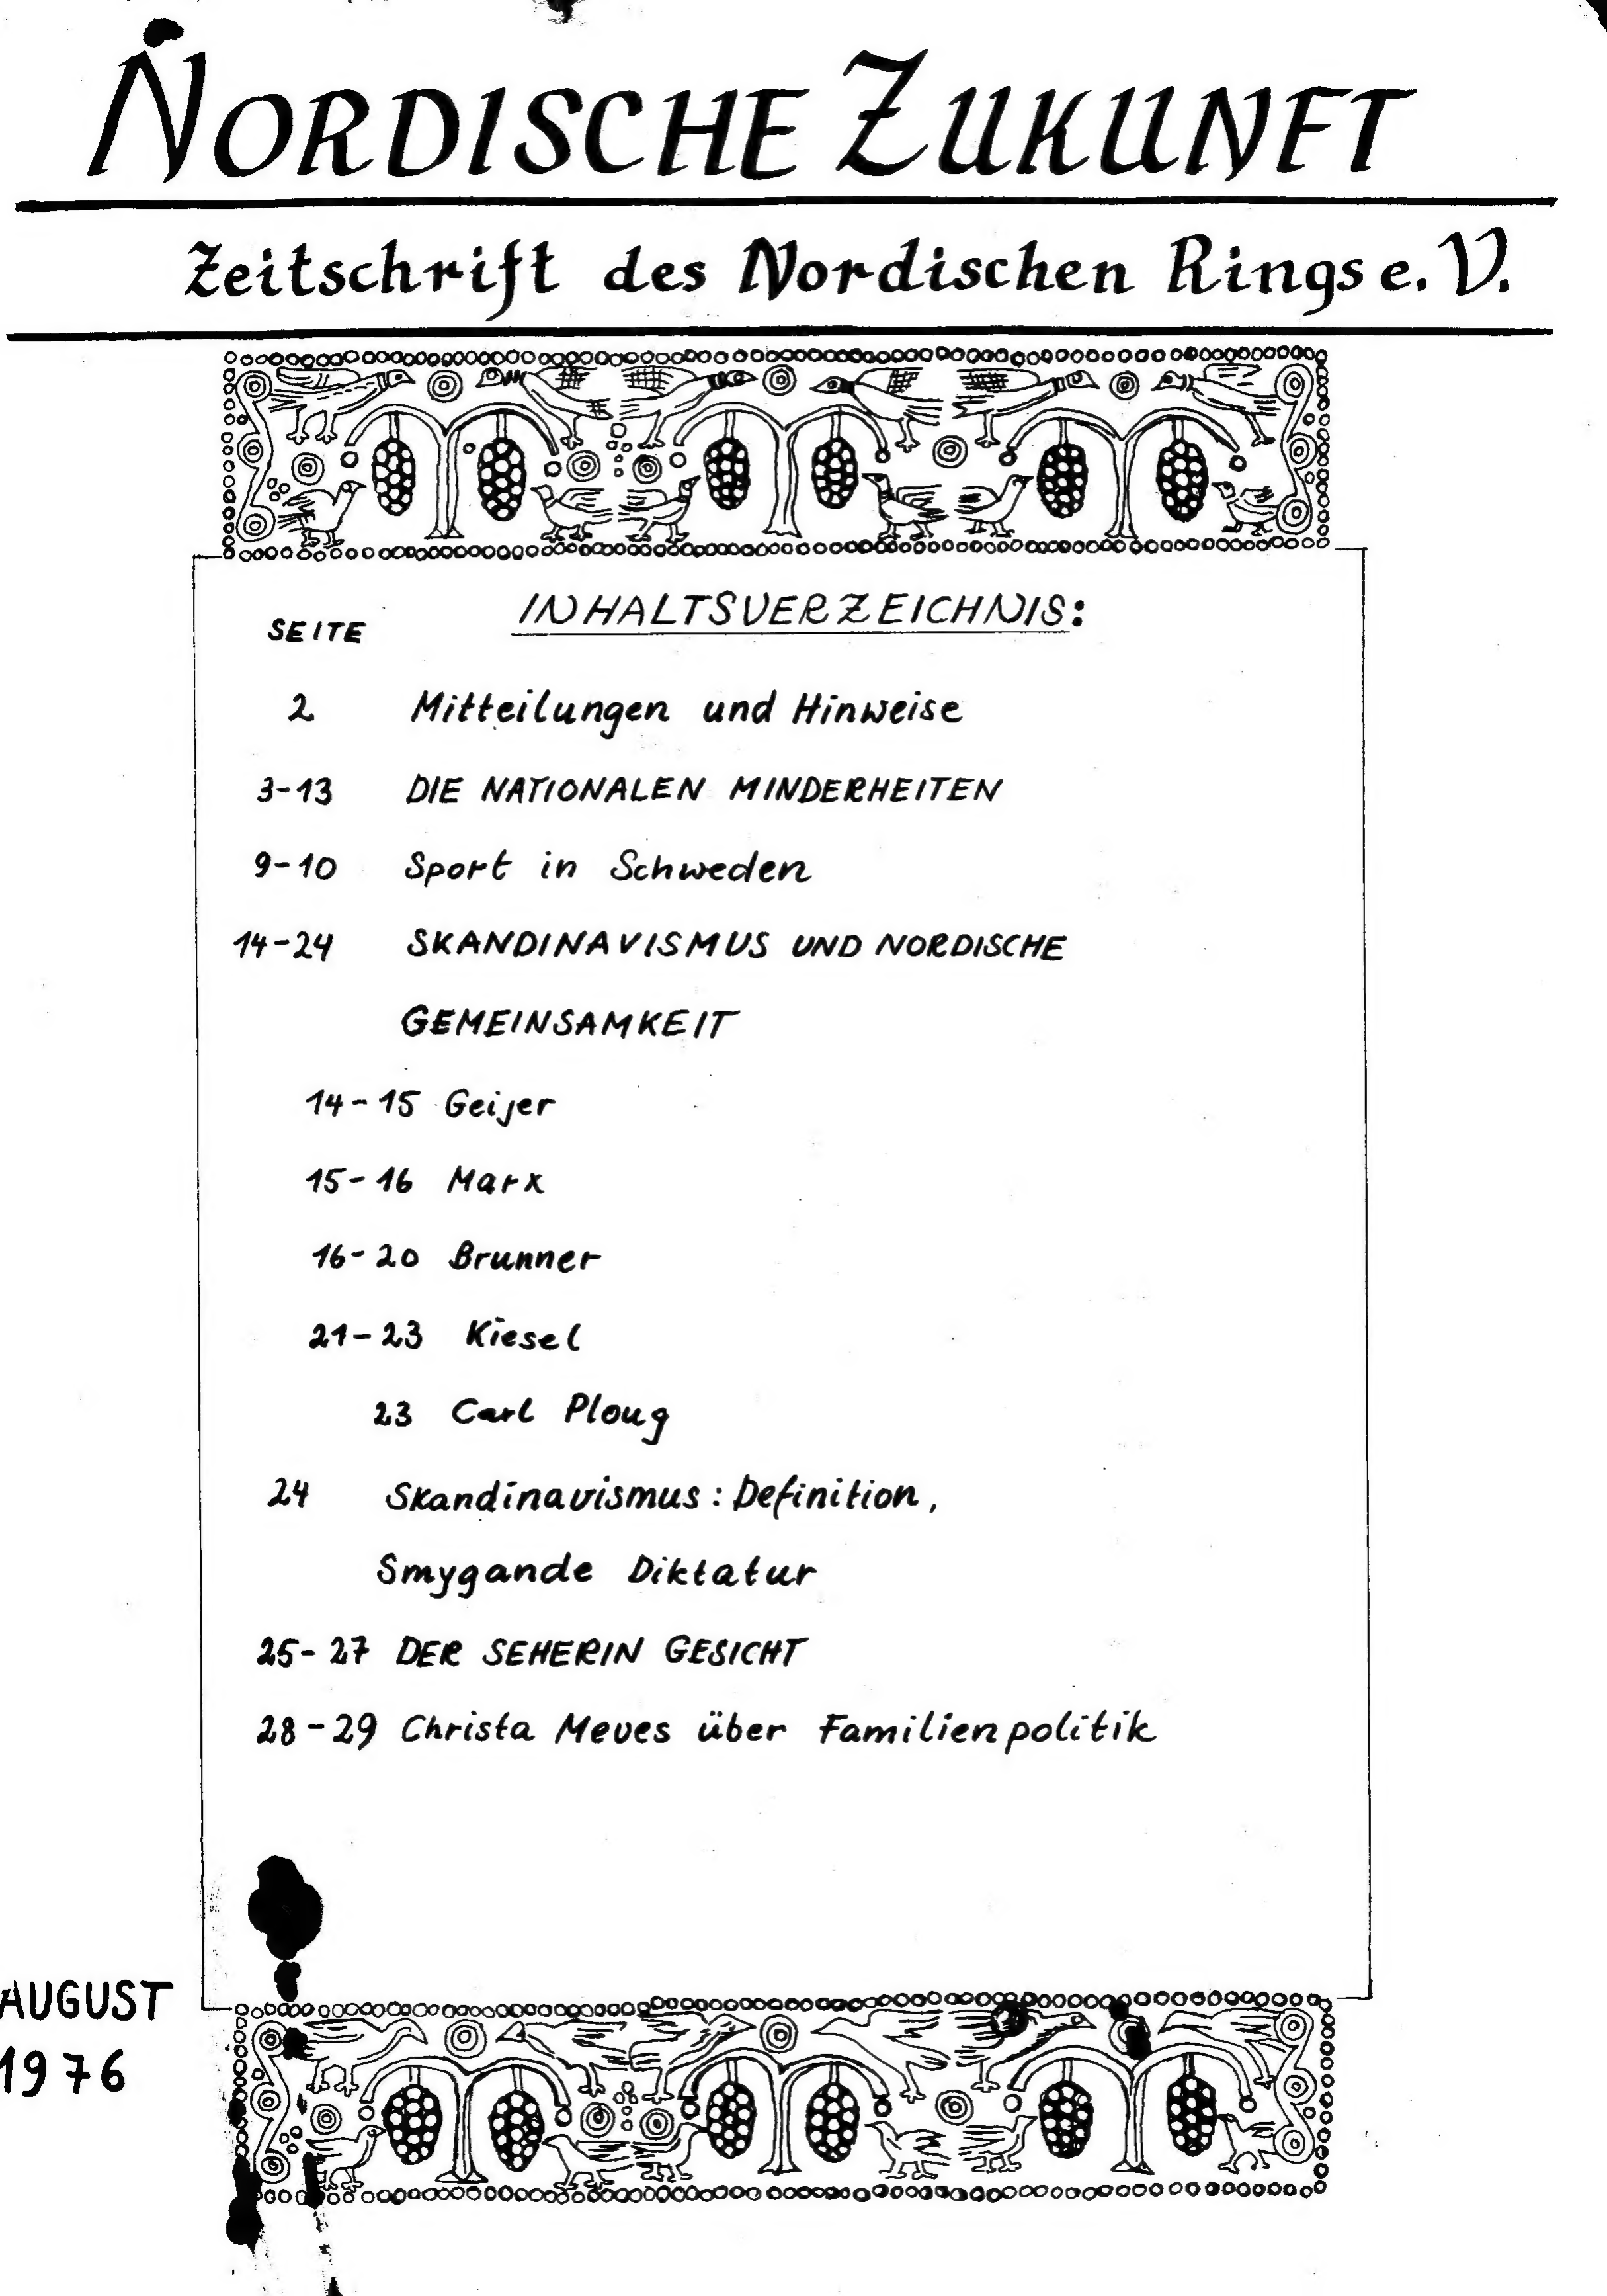 NORDISCHE ZUKUNFT
Zeitschrift des Nordischen Rings e. V.
INHALTSVERZEICHNIS:
SEITE
2 Mitteilungen und Hinweise
3-13 DIE NATIONALEN MINDERHEITEN
9-10 Sport in Schweden
14-24 SKANDINAVISMUS UND NORDISCHE
GEMEINSAMKEIT
14-15 Geijer
15-16 Marx
16-20 Brunner
21-23 Kiesel
23 Carl Ploug
24 Skandinavismus: Definition,
Smygande Diktatur
25-27 DER SEHERIN GESICHT
28-29 Christa Meves über Familienpolitik
AUGUST
1976